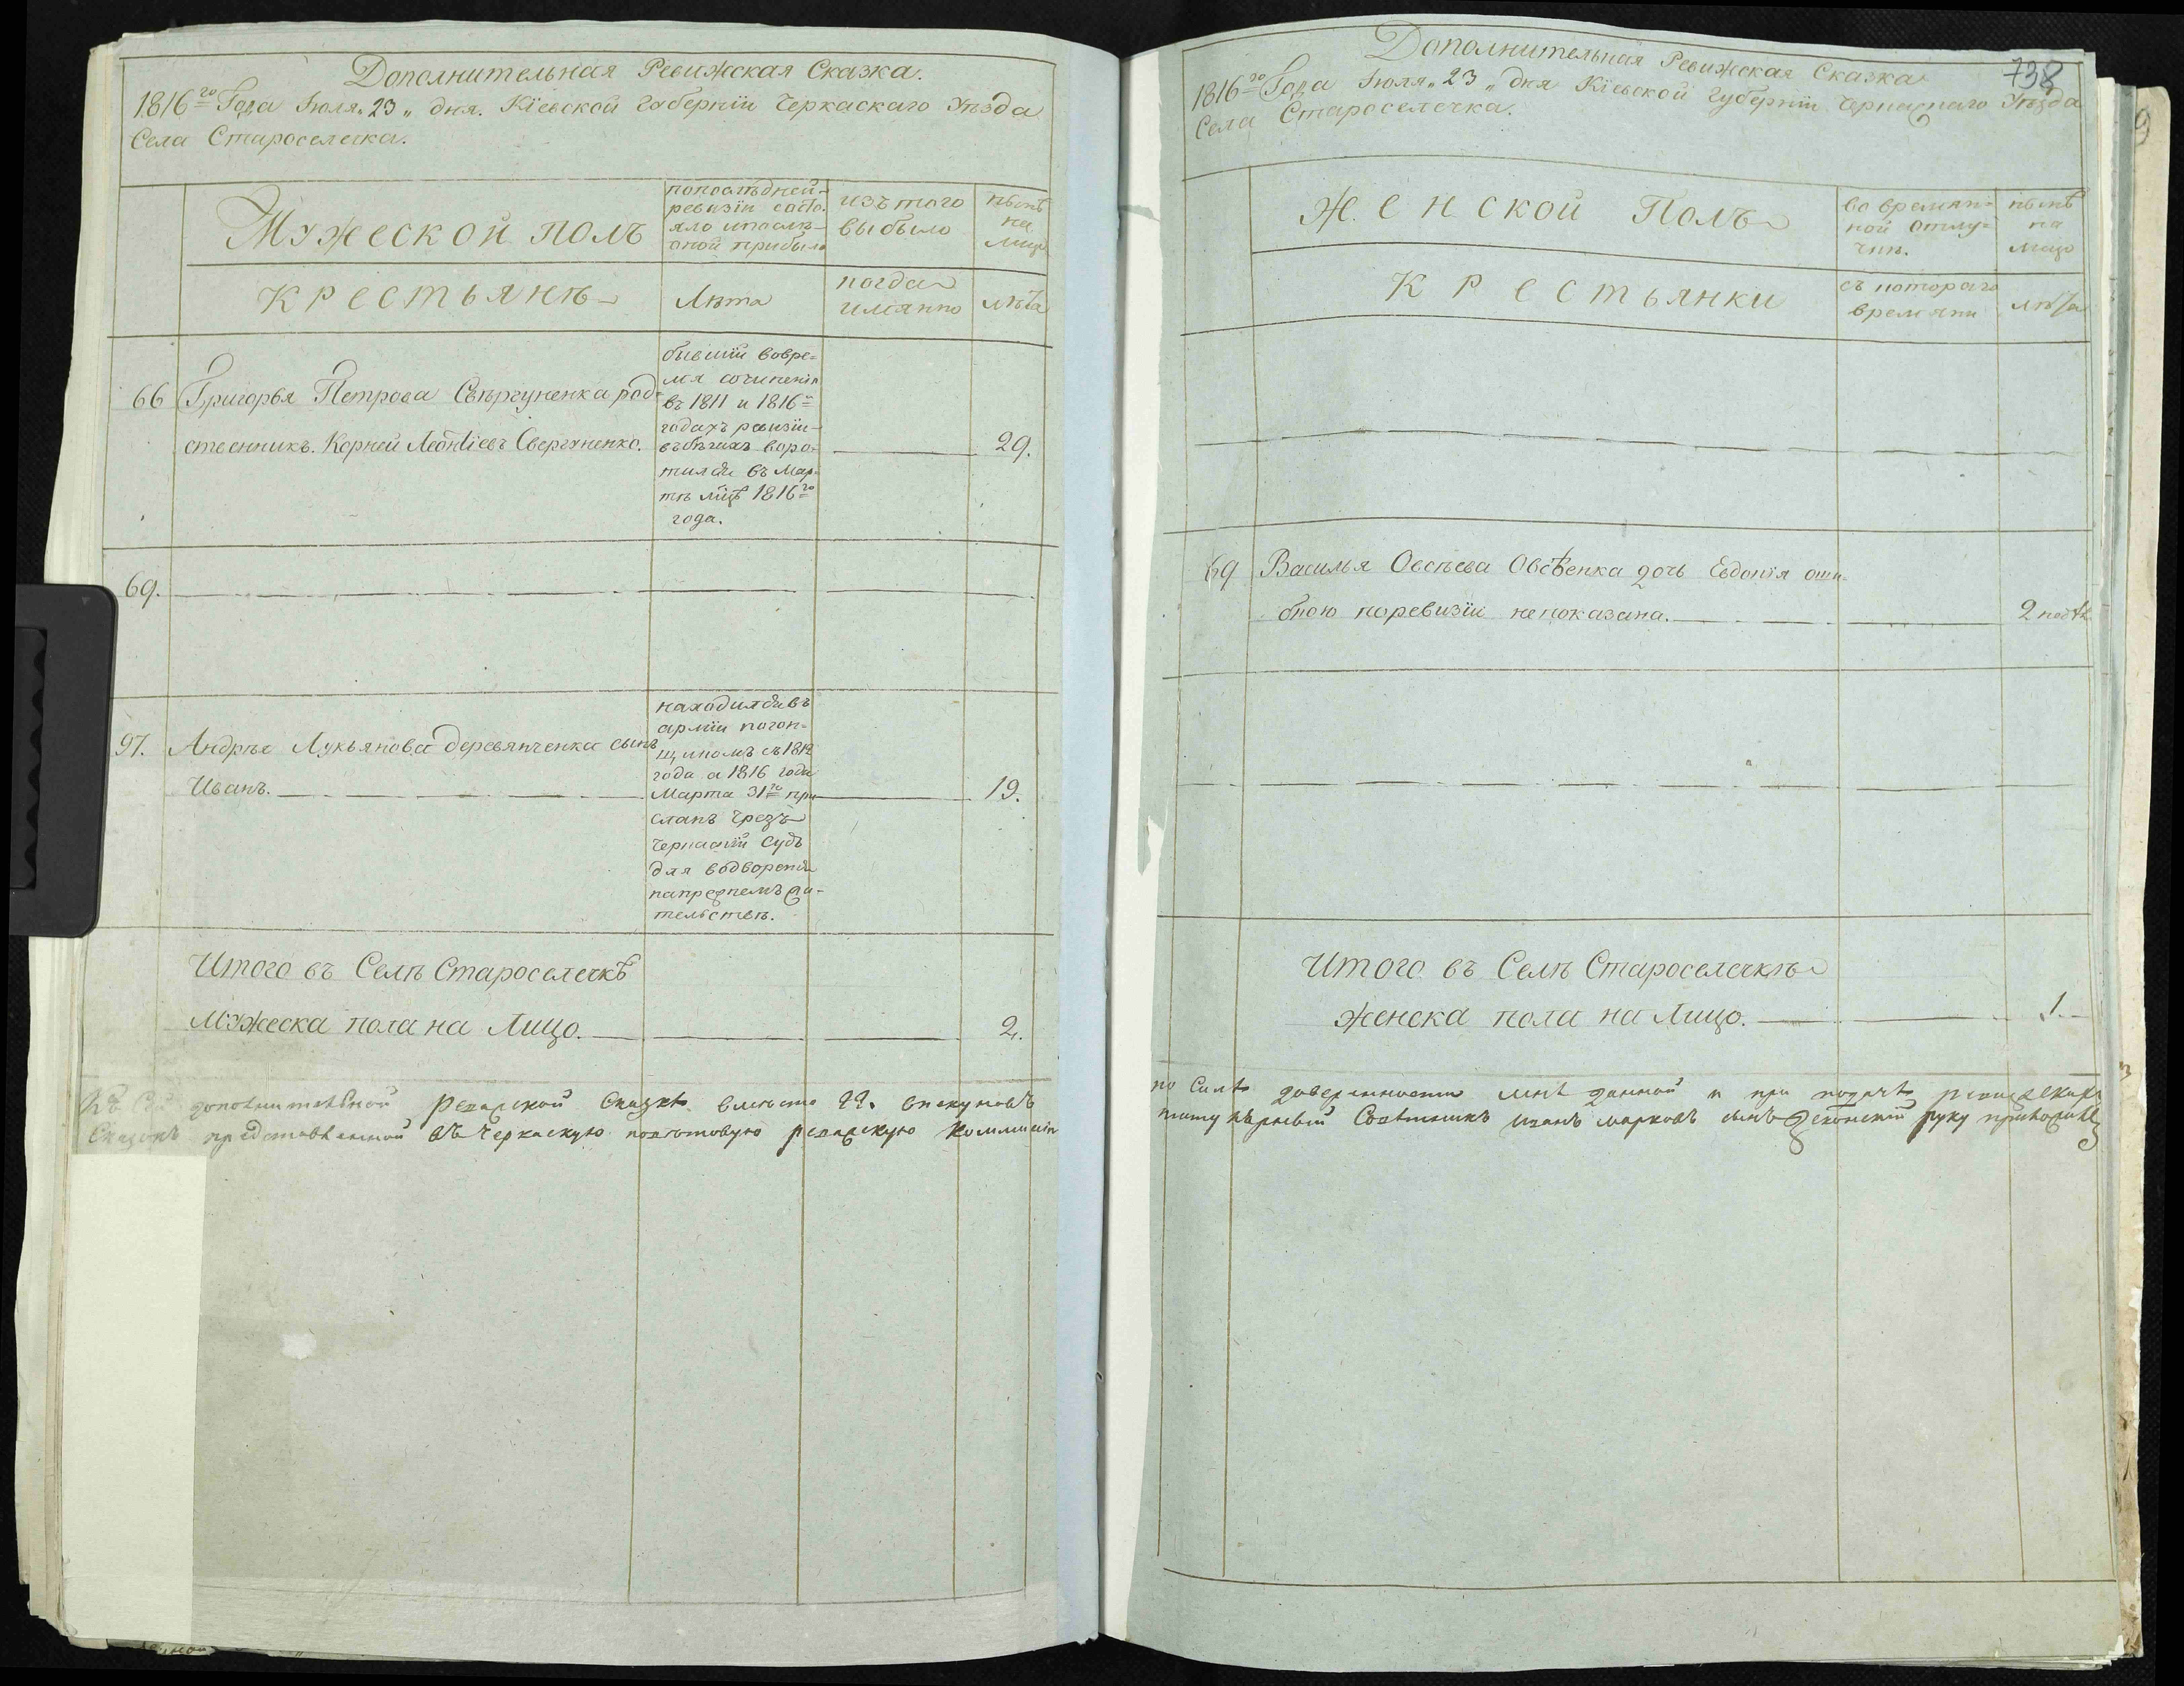 Дополнительная Ревижская Сказка.
1816го Года Іюля „23„ дня. Кіевской Губерніи Черкаскаго Уѣзда
Села Староселечка.
Мужеской полъ
попослѣдней
ревизіи состо-
яло ипослѣ-
оной прибыло
изъ того
выбыло
нынѣ
на
лицо
Крестьянѣ
Лѣта
когда
имянно
лѣта
66 Григорья Петрова Свѣргуненка род-
ственникъ. Корней Леонтіевъ Свергуненко.
бывшій вовре-
мя сочиненія
въ 1811 и 1816
годахъ ревизіи
въ бѣгахъ воро-
тился въ Мар-
тѣ мцѣ 1816го
года.
29.
69.
97. Андрѣя Лукьянова Деревянченка сынъ
Иванъ.
находился въ
арміи погон-
щикомъ съ 1812
года а 1816 года
Марта 31го при
сланъ чрезъ
Черкаскій Судъ
для водворенія
напрежнемъ жи-
тельствѣ.
19.
Итого въ Селѣ Староселечкѣ
Мужеска пола на Лицо. 2.
Къ Сей дополнительной ревизской Сказкѣ вместо 22. опекуновъ
Сказокъ представленной въ Черкаскую поветовую ревизскую коммисію
738
Дополнительная Ревижская Сказка
1816го Года Іюля „23„ дня Кіевской Губерніи Черкаскаго Уѣзда
Села Староселечка.
Женской Полъ
во времян-
ной отлу-
чкѣ.
нынѣ
на
лицо
Крестьянки
съ котораго
времяни
лѣта
69 Василья Овсѣева Овсѣенка дочь Евдокія оши-
бкою поревизіи непоказана. 2
Итого въ Селѣ Староселечкѣ
Женска пола на Лицо. 1.
по Силѣ доверенности мнѣ данной и при подачѣ
титулярный Советникъ иванъ марковъ сынъ руку приложилъ